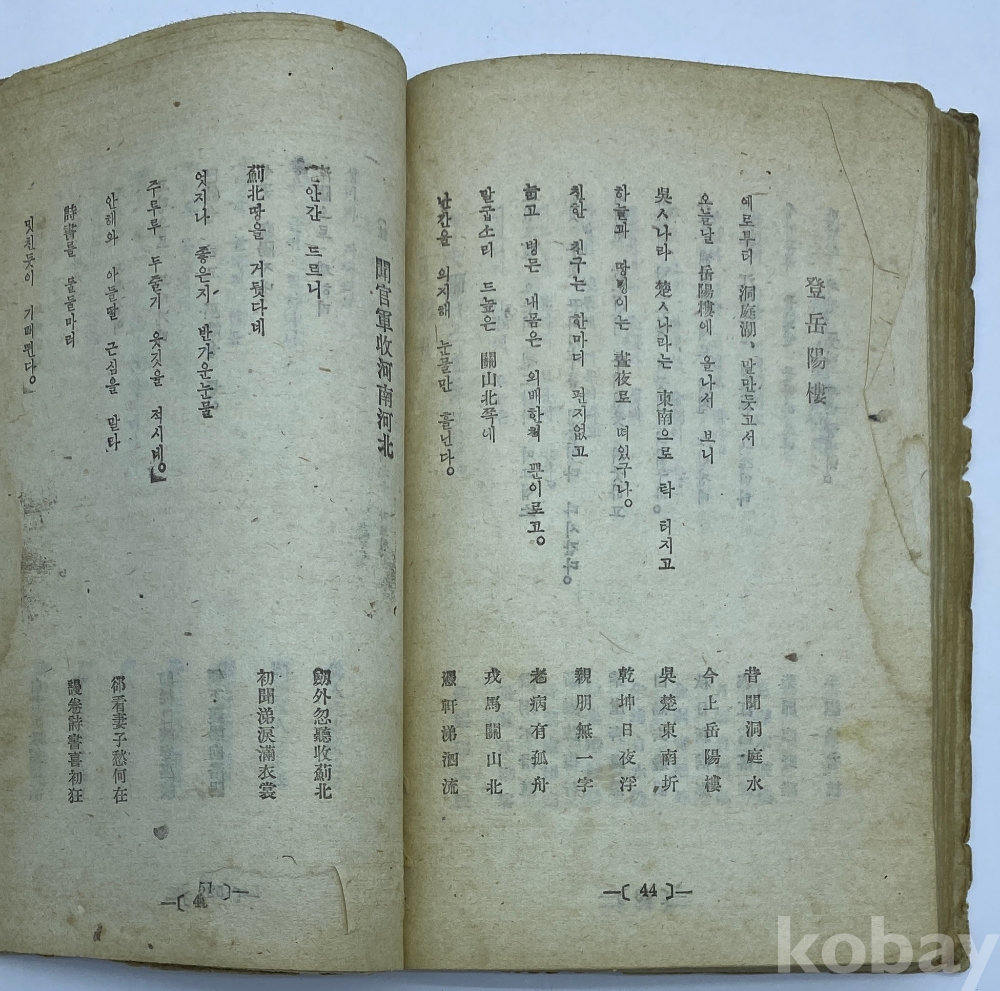 登岳陽樓
예로부터 洞庭湖、말만듯고서
오늘날 岳陽樓에 올나서 보니
吳ㅅ나라 楚ㅅ나라는 東南으로 탁 터지고
하늘과 땅덩이는 晝夜로 떠있구나。
친한 친구는 한마디 편지없고
늙고 병든 내몸은 외배한척 뿐이로고。
말굽소리 드높은 關山北쪽에
난간을 의지해 눈물만 흘닌다。
昔聞洞庭水
今上岳陽樓
吳楚東南圻
乾坤日夜浮
親朋無一字
老病有孤舟
戎馬關山北
憑軒涕泗流
—〔 44 〕—
聞官軍收河南河北
안간 드르니
薊北땅을 거뒷다네
엇지나 좋은지 반가운눈물
주루루 두줄기 옷깃을 적시네。
안해와 아들딸 근심을 말라
詩書를 둘둘마리
밋친듯이 기뻐뛴다。
劒外忽聽收薊北
初聞涕淚滿衣裳
郤看妻子愁何在
謾卷詩書喜初狂
51
kobay